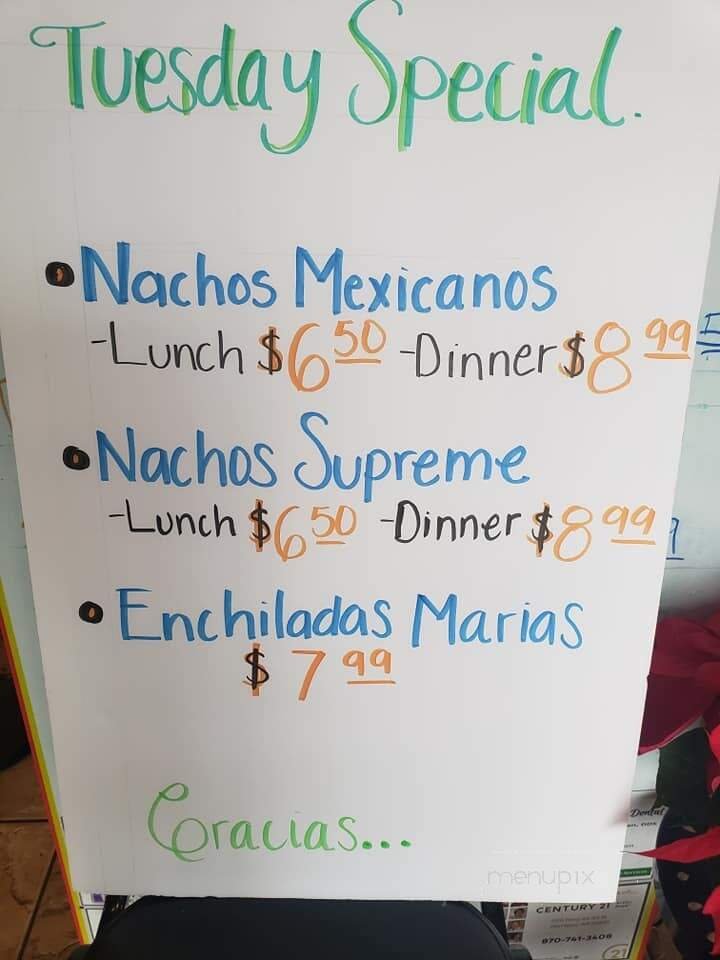 Tuesday Special.
Nachos Mexicanos
-Lunch $6 50 -Dinner $8 99
Nachos Supreme
-Lunch $6 50 -Dinner $8 99
Enchiladas Marias
$ 7 99
Gracias...
Dental
menupix
CENTURY 21
870-741-3408
21